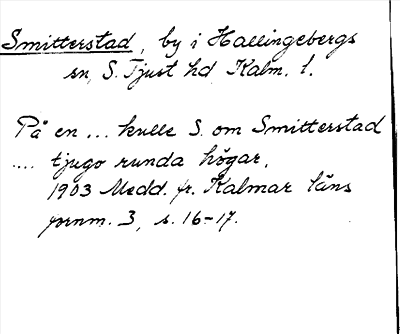 Smitterstad, by i Hallingebergs
sn, S. Tjust hd, Kalm. l.
På en ... kulle S. om Smitterstad
.... tjugo runda högar,
1903 Medd. fr. Kalmar läns
fornm. 3, s. 16-17.